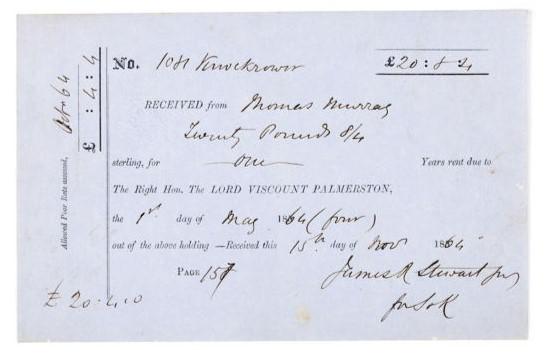 No. 1081 Knockrower £20 : 8 : 4
RECEIVED from Thomas Murray
Twenty Pounds 8/4
sterling, for one Years rent due to
The Right Hon. The LORD VISCOUNT PALMERSTON,
the 1st day of May 1864 (four)
out of the above holding —Received this 15th day of Nov 1864
PAGE 157
James R Stewart
£ 20-4.0
Allowed Poor Rate assessed, 64
£ : 4 : 4